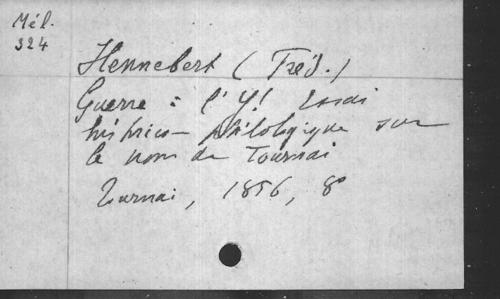 Mél.
324
Hennebert (Fréd.)
Guerre à l'Y! Essai
historico-philologique sur
le nom de Tournai
Tournai, 1856, 8°